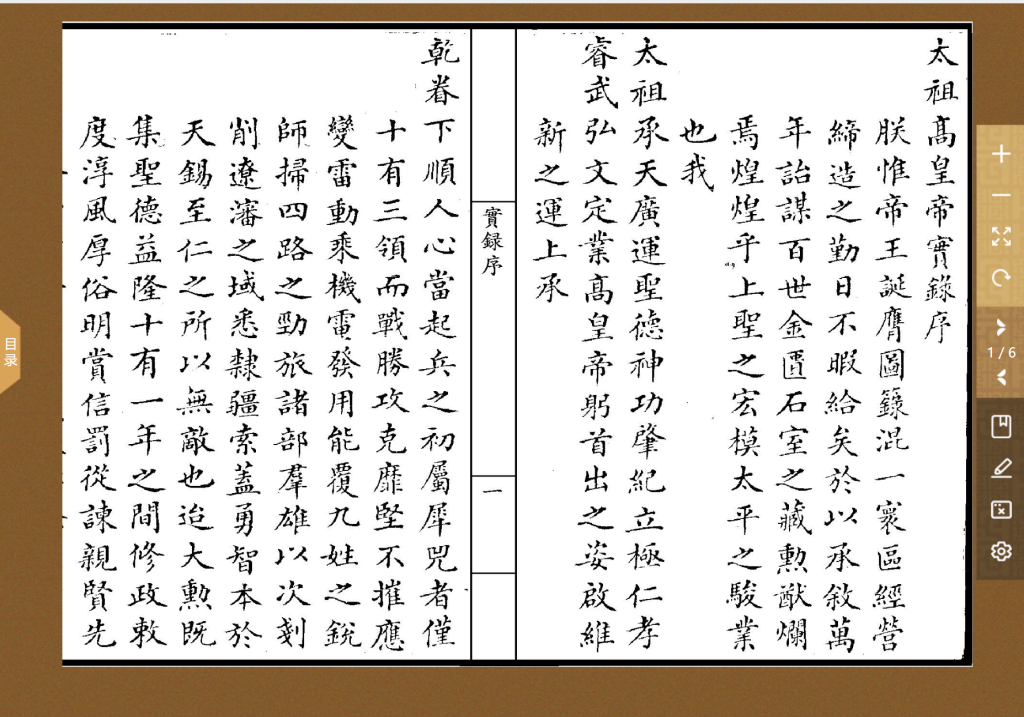 太祖高皇帝實錄序
朕惟帝王誕膺圖籙混一寰區經營
締造之勤日不暇給矣於以承敘萬
年詒謀百世金匱石室之藏勳猷爛
焉煌煌乎上聖之宏模太平之駿業
也我
太祖承天廣運聖德神功肇紀立極仁孝
睿武弘文定業高皇帝躬首出之姿啟維
新之運上承
實錄序
一
乾眷下順人心當起兵之初屬犀兕者僅
十有三領而戰勝攻克靡堅不摧應
變雷動乘機電發用能覆九姓之銳
師掃四路之勁旅諸部羣雄以次剗
削遼瀋之域悉隸疆索蓋勇智本於
天錫至仁之所以無敵也迨大勳既
集聖德益隆十有一年之間修政敕
度淳風厚俗明賞信罰從諫親賢先
目录
1/6